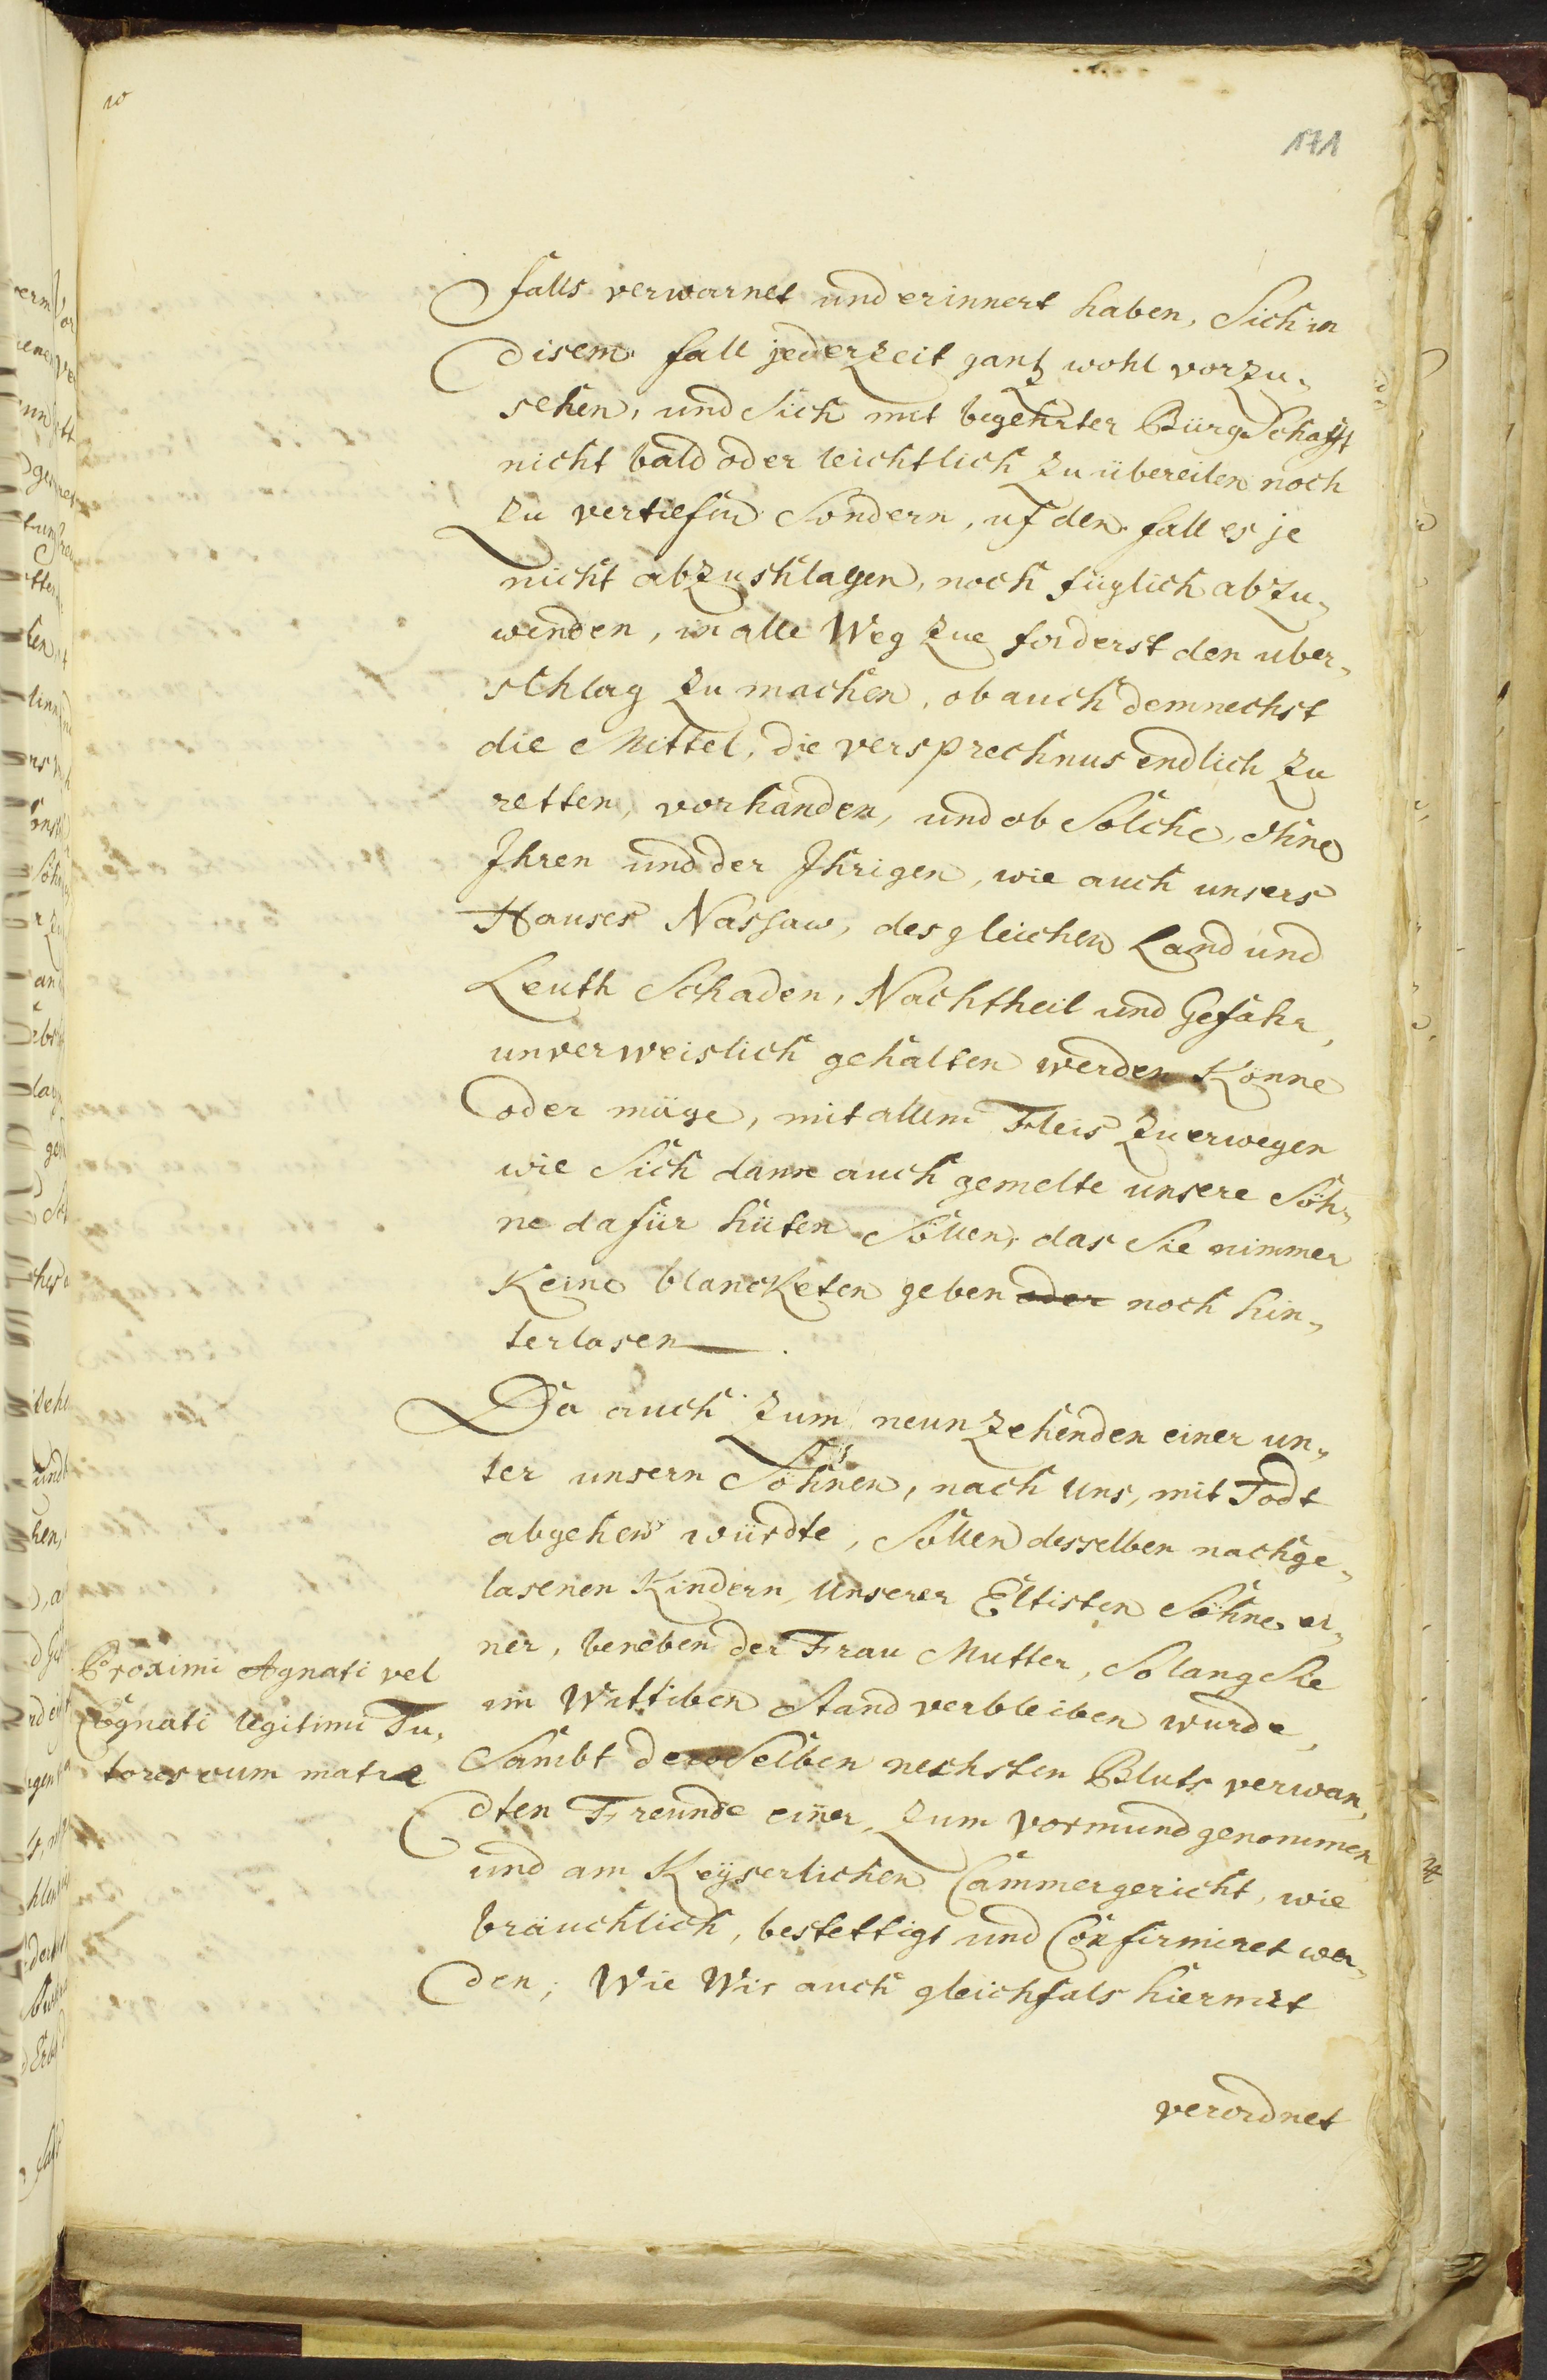 171
falls verwarnet und erinnert haben, Sich in
disem fall jederzeit gantz wohl vorzu-
sehen, und Sich mit begehrter BürgSchafft
nicht bald oder leichtlich zu übereilen noch
zu vertiefen Sondern, uf den fall es je
nicht abzuschlagen, noch füglich abzu-
wenden, in alle Weg zue forderst den uber-
schlag zu machen, ob auch demnechst
die Mittel, die versprechnus endlich zu
retten, vorhanden, und ob Solche, ohne
Ihren und der Ihrigen, wie auch unsers
Hauses Nassaw, desgleichen Land und
Leuth Schaden, Nachtheil und Gefahr,
unverweislich gehalten werden Könne
oder müge, mit allem Fleis zu erwegen
wie Sich dann auch gemelte unsere Söh-
ne dafür hüten Sollen, das Sie nimmer
Keine blancKeten geben oder noch hin-
terlasen.
Da auch zum neunzehenden einer un-
ter unsern Söhnen, nach uns, mit Todt
abgehen würdte, Sollen desselben nachge-
lasenen Kindern unserer Eltisten Söhne ei-
ner, beneben der Frau Mutter, Solang Sie
im Wittiben Stand verbleiben wurde,
Sambt deroSelben nechsten Bluts verwan-
dten Freunde einer, zum vormund genommen
und am Keyserlichen Cammergericht, wie
bräuchlich, bestettigt und Confirmiret wer-
den; Wie Wir auch gleichfals hiermit
verordnet
Proximi Agnati vel
Cognati legitimi Tu-
tores cum matre